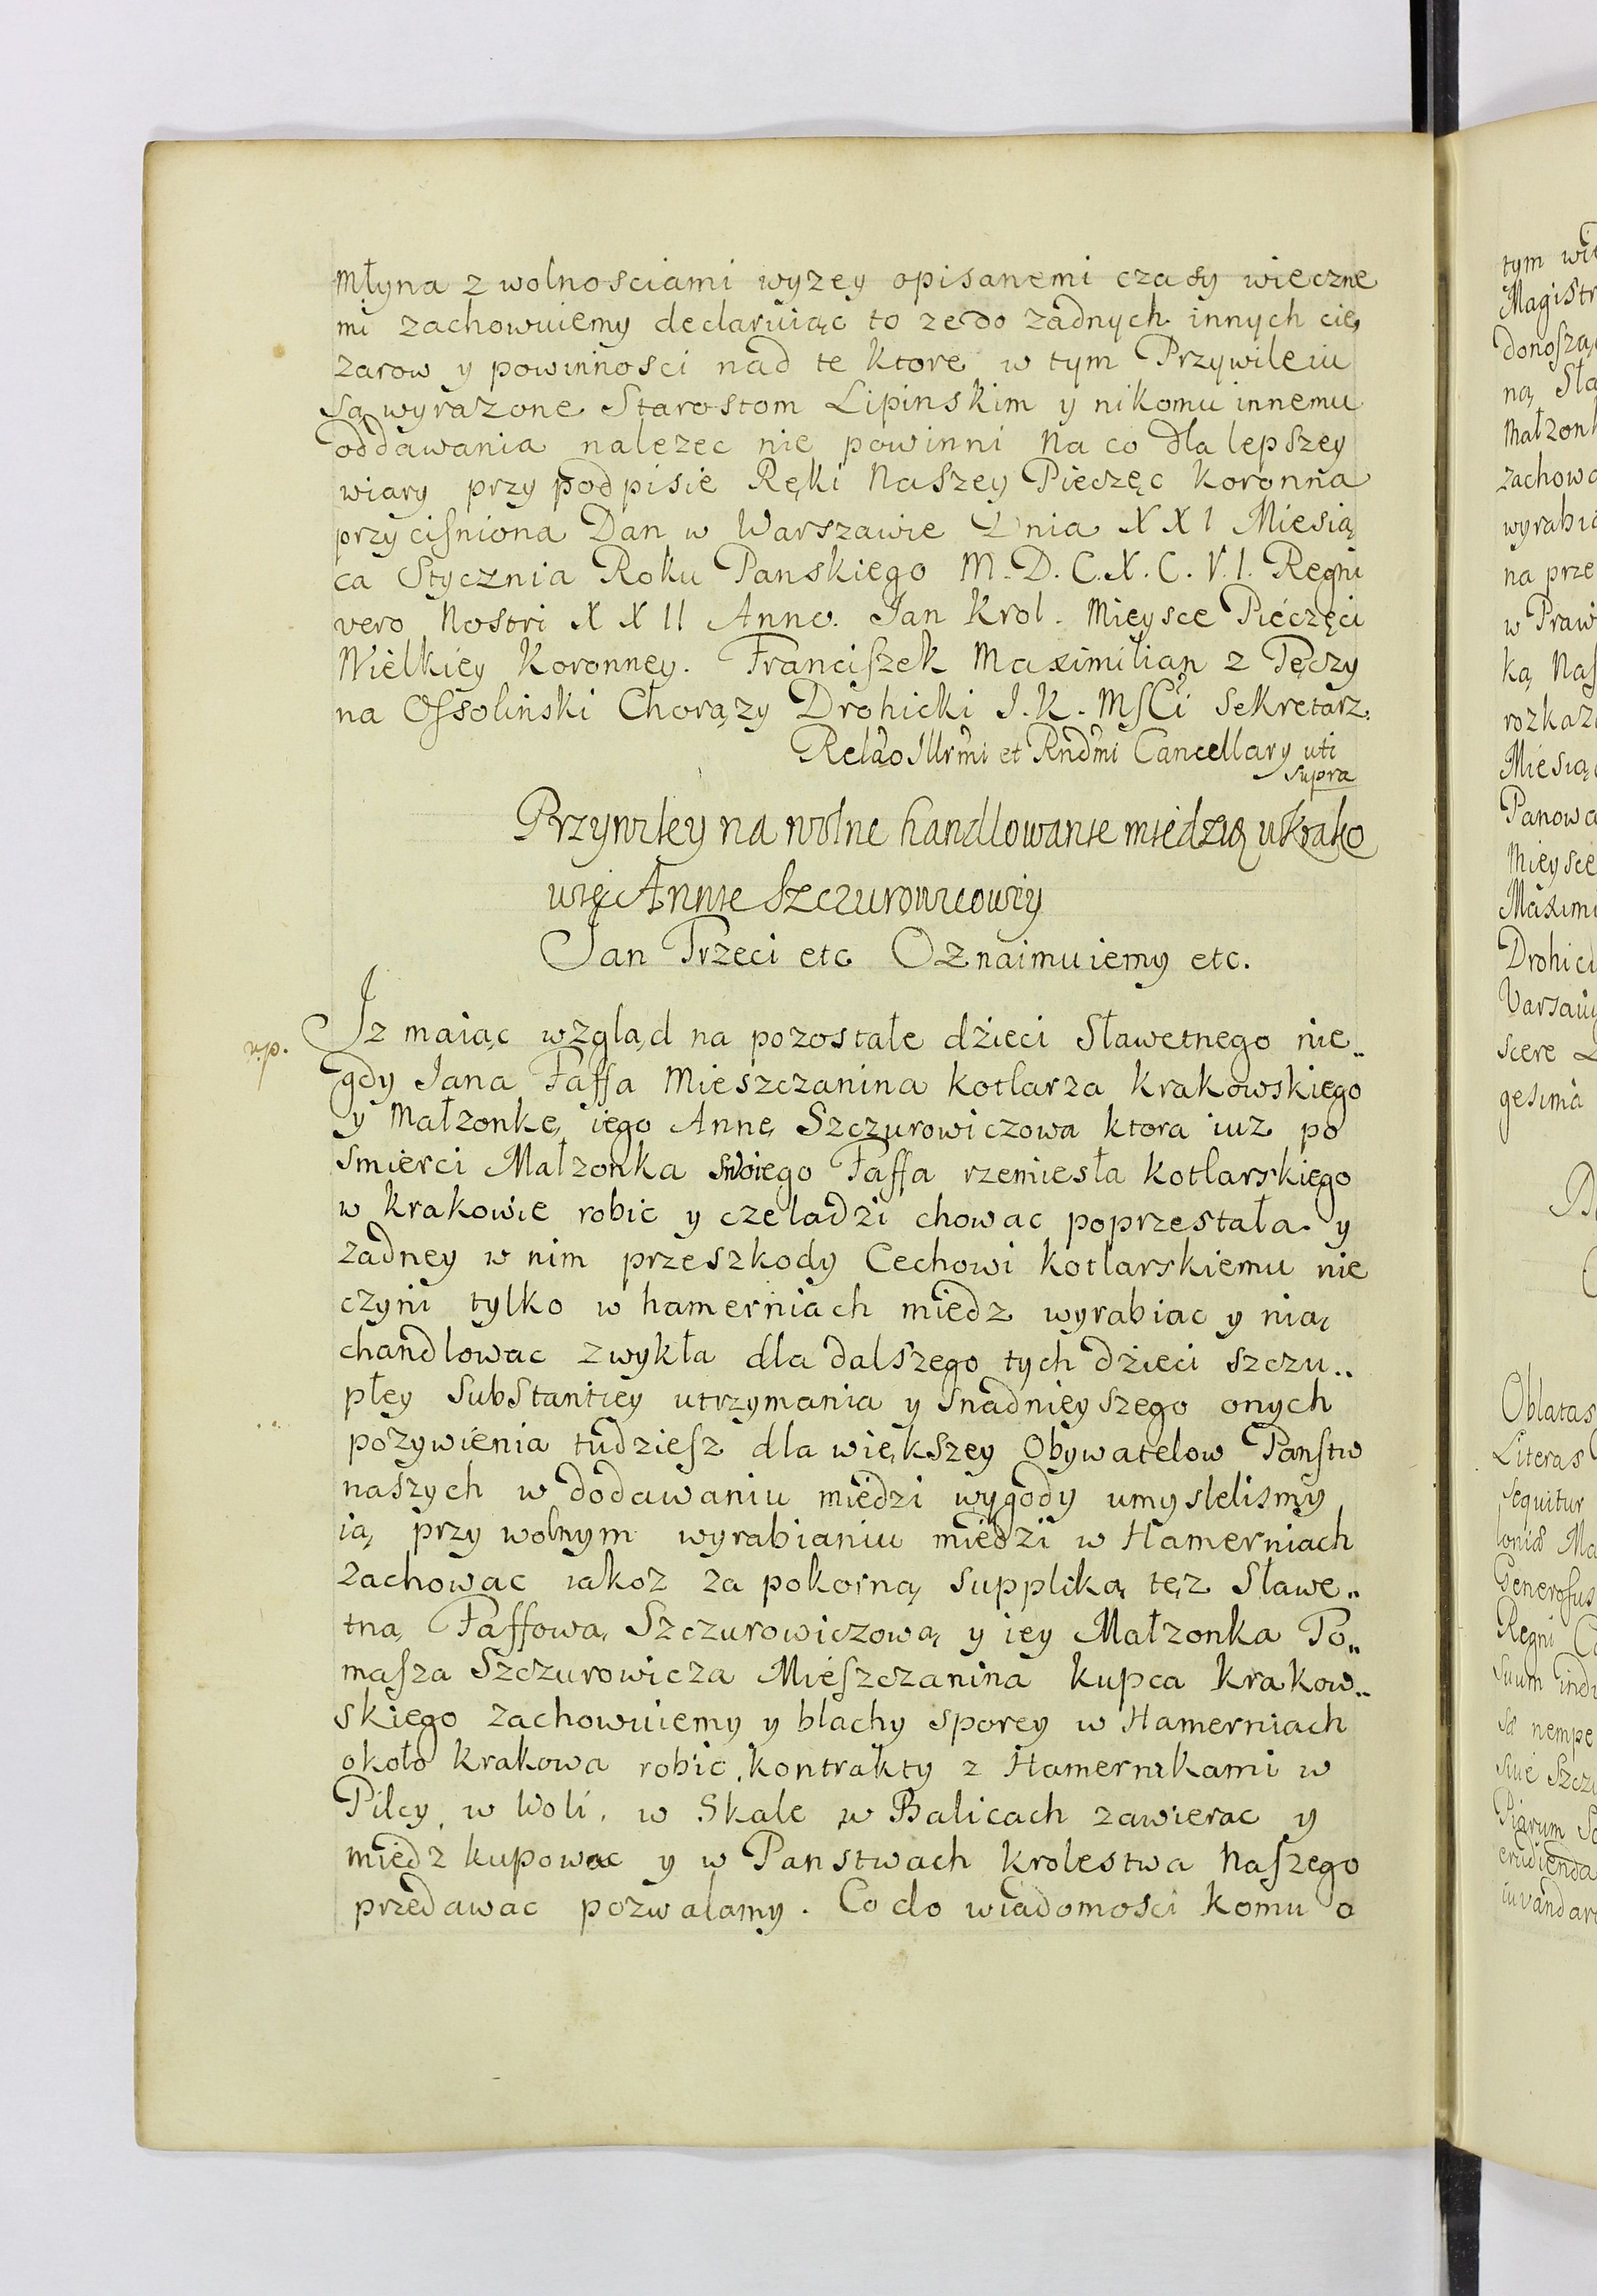 Młyna z wolnosciami wyzey opisanemi czasy wieczne
mi zachowuiemy declaruiąc to ze do zadnych innych cię
zarow y powinnosci nad te ktore w tym Przywileiu
są wyrazone Starostom Lipinskim y nikomu innemu
oddawania nalezec nie powinni Na co dla lepszey
wiary przy podpisie Ręki Naszey Pieczęc Koronna
przycisniona Dan w Warszawie Dnia XXI Miesią
ca Stycznia Roku Panskiego M.D.C.X.C.V.I. Regni
vero Nostri XXII Anno. Jan Krol. Mieysce Pieczęci
Wielkiey Koronney. Franciszek Maximilian z Tęczy
na Ossolinski Chorązy Drohicki J.K.MsCi Sekretarz.
Relao Illrmi et Rndmi Cancellary uti
supra
Przywiley na wolne handlowanie miedzią w Krako
wię Annie Szczurowicowiy
Jan Trzeci etc Oznaimuiemy etc.
Jz maiąc wzgląd na pozostałe dzieci Sławetnego nie..
gdy Jana Faffa Mieszczanina kotlarza krakowskiego
y Małzonkę iego Annę Szczurowiczowa ktora iuz po
smierci Małzonka swoiego Faffa rzemiesła kotlarskiego
w krakowie robic y czeladzi chowac poprzestała y
zadney w nim przeszkody Cechowi kotlarskiemu nie
czyni tylko w hamerniach miedz wyrabiac y nią
chandlowac zwykła dla dalszego tych dzieci szczu..
płey substantiey utrzymania y snadnieyszego onych
pozywienia tudziesz dla większey Obywatelow Panstw
naszych w dodawaniu miedzi wygody umyslelismy
ią przy wolnym wyrabianiu miedzi w Hamerniach
zachowac iakoz za pokorną suppliką tęz Sławe..
tną Faffową Szczurowiczową y iey Małzonka To..
masza Szczurowicza Mieszczanina kupca krakow..
skiego zachowuiemy y blachy sporey w Hamerniach
około krakowa robic, kontrakty z Hamernikami w
Pilcy, w Woli, w Skale w Balicach zawierac y
miedz kupowac y w Panstwach krolestwa Naszego
przedawac pozwalamy. Co do wiadomosci komu o